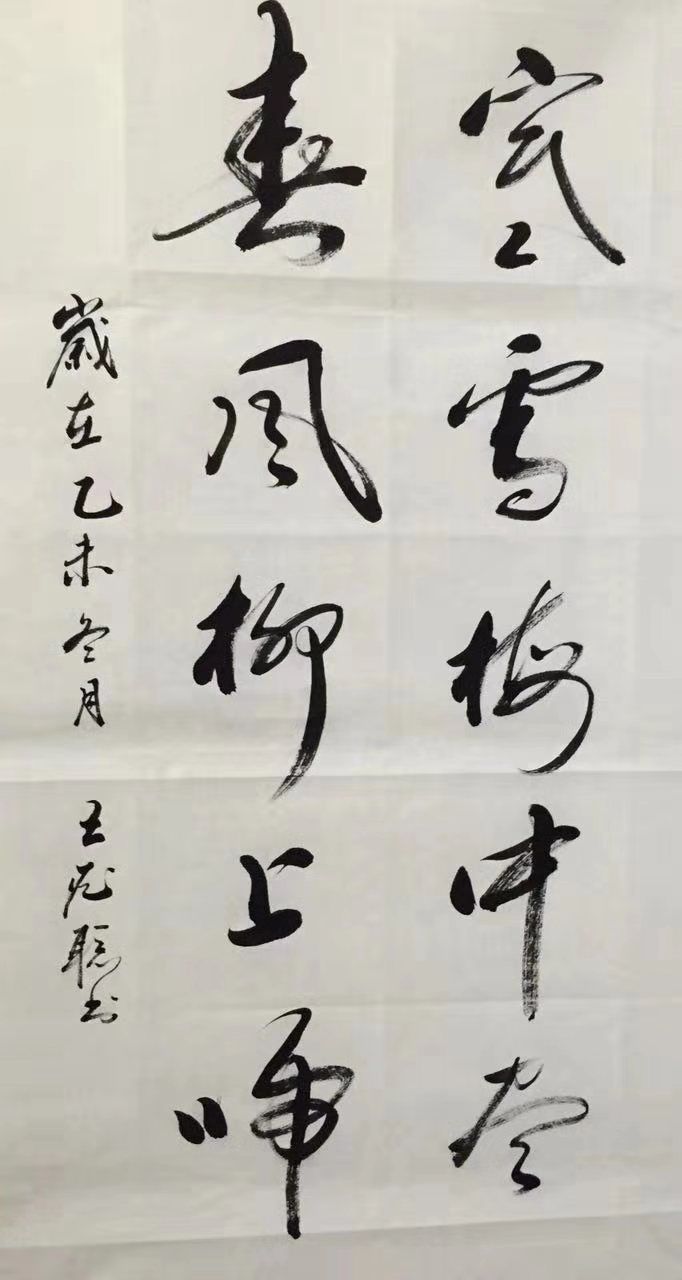 寒雪梅中尽
春风柳上归
歲在乙未冬月 王 聪书